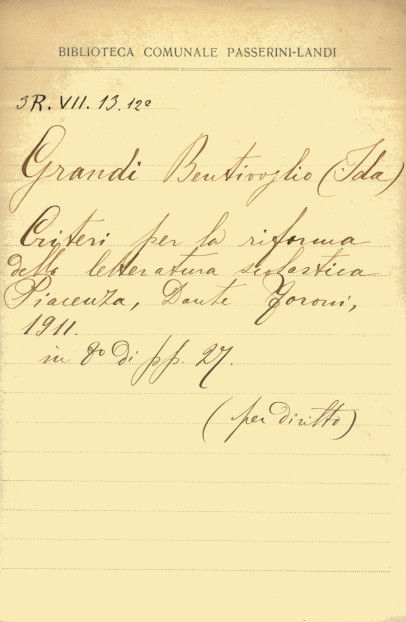 BIBLIOTECA COMUNALE PASSERINI-LANDI
3R. VII. 13. 12º
Grandi Bentivoglio (Ida)
Criteri per la riforma
della letteratura scolastica
Piacenza, Dante Foroni,
1911.
in 8º di pp. 27.
(per diritto)